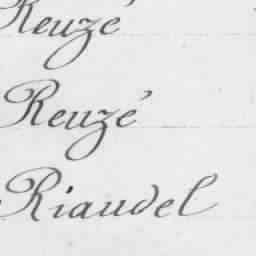 Reuzé
Reuzé
Riaudel